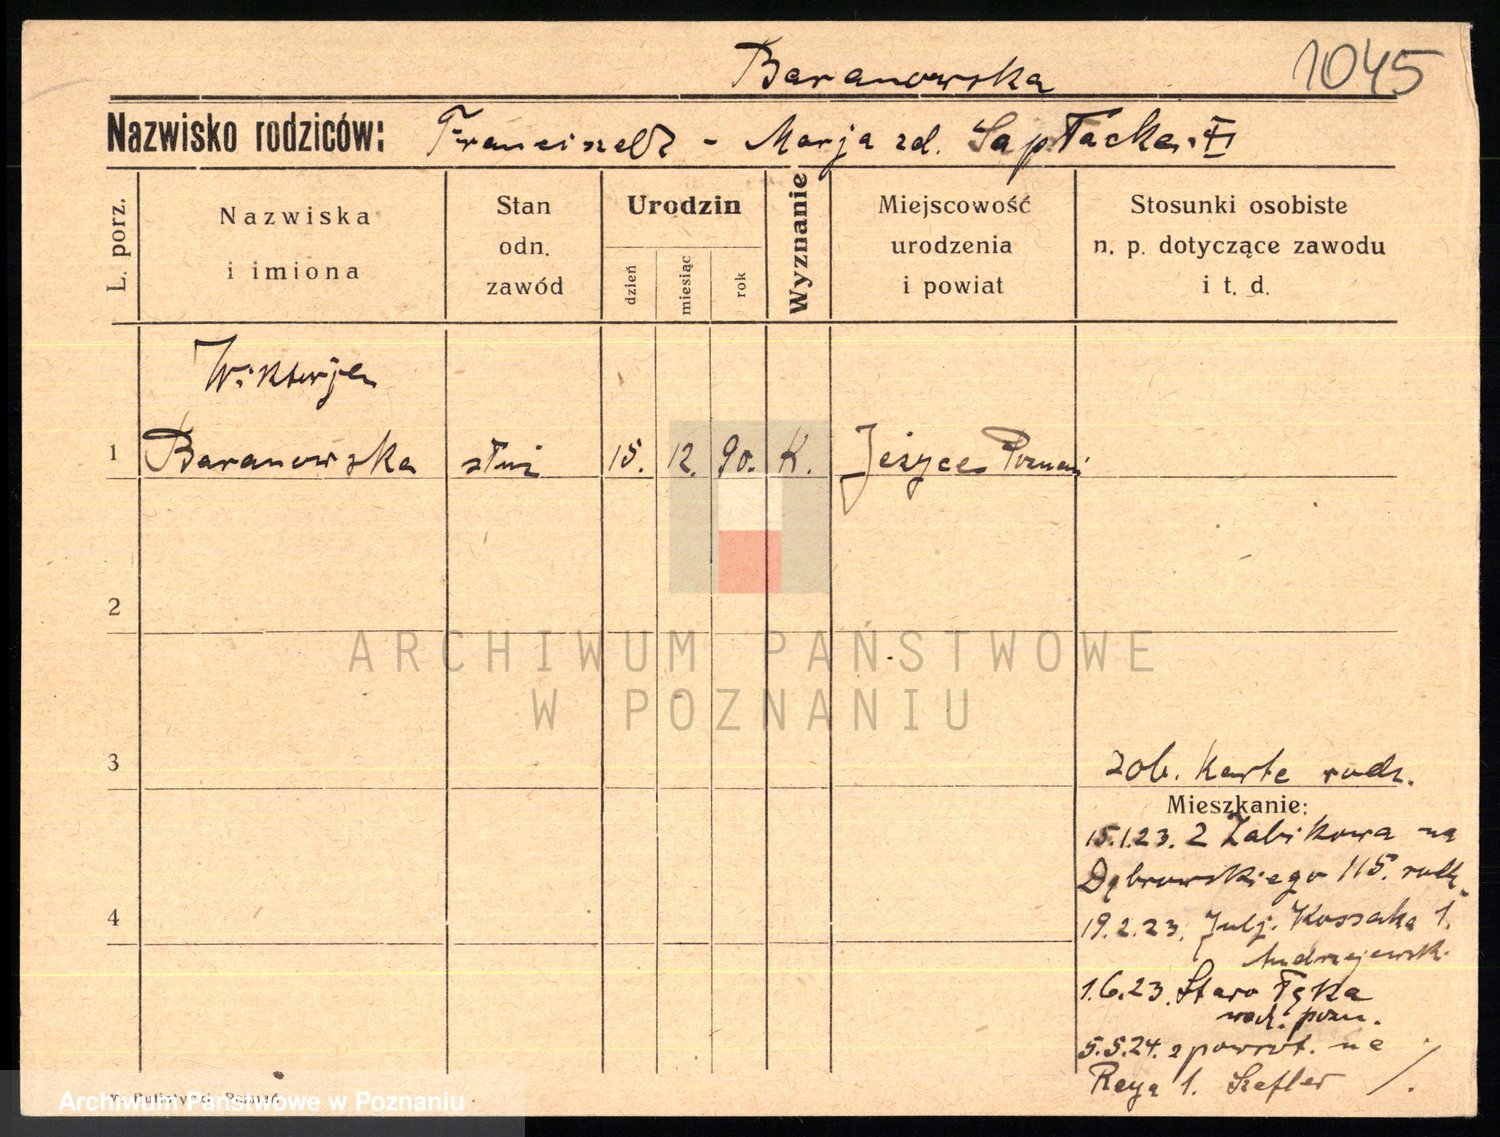 Baranowska 1045
Nazwisko rodziców: Franciszek - Marja zd. Sapłacka
L. porz.
Nazwiska i imiona
Stan odn. zawód
Urodzin
dzień miesiąc rok
Wyznanie
Miejscowość urodzenia i powiat
Stosunki osobiste n. p. dotyczące zawodu i t. d.
Wiktorja
1 Baranowska służ 15. 12. 90. K. Jeżyce Poznań
2
ARCHIWUM PAŃSTWOWE
W POZNANIU
3 zob. Karte rodz.
Mieszkanie:
15.1.23. z Żabikowa na
Dąbrowskiego 115. rodz.
4 19.2.23. Julj. Kossaka 1.
Andrzejewsk.
1.6.23. Staro Łęka
pozn.
5.5.24. z powrot. na
Reya 1. Szefler /.
Archiwum Państwowe w Poznaniu